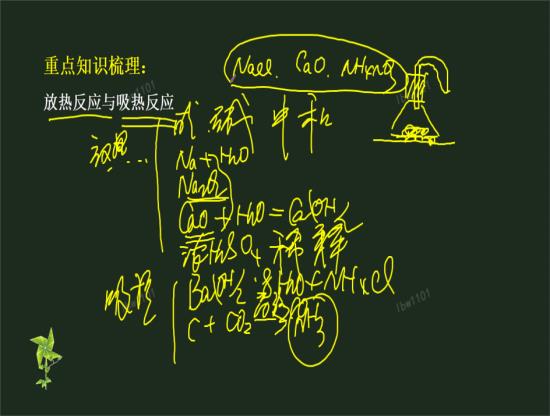 重点知识梳理:
NaCl. CaO. NH4NO3
放热反应与吸热反应
酸碱中和
放热
Na+H2O
Na2O2
CaO+H2O=Ca(OH)2
浓H2SO4稀释
吸热
Ba(OH)2·8H2O+NH4Cl
C+CO2 高温
NH3
lbw1101
lbw1101